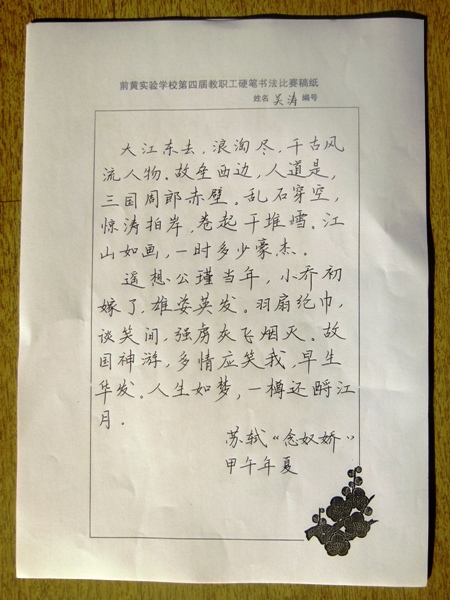 前黄实验学校第四届教职工硬笔书法比赛稿纸
姓名 吴涛 编号
大江东去，浪淘尽，千古风
流人物。故垒西边，人道是，
三国周郎赤壁。乱石穿空，
惊涛拍岸，卷起千堆雪。江
山如画，一时多少豪杰。
遥想公瑾当年，小乔初
嫁了，雄姿英发。羽扇纶巾，
谈笑间，强虏灰飞烟灭。故
国神游，多情应笑我，早生
华发。人生如梦，一樽还酹江
月．
苏轼“念奴娇”
甲午年夏